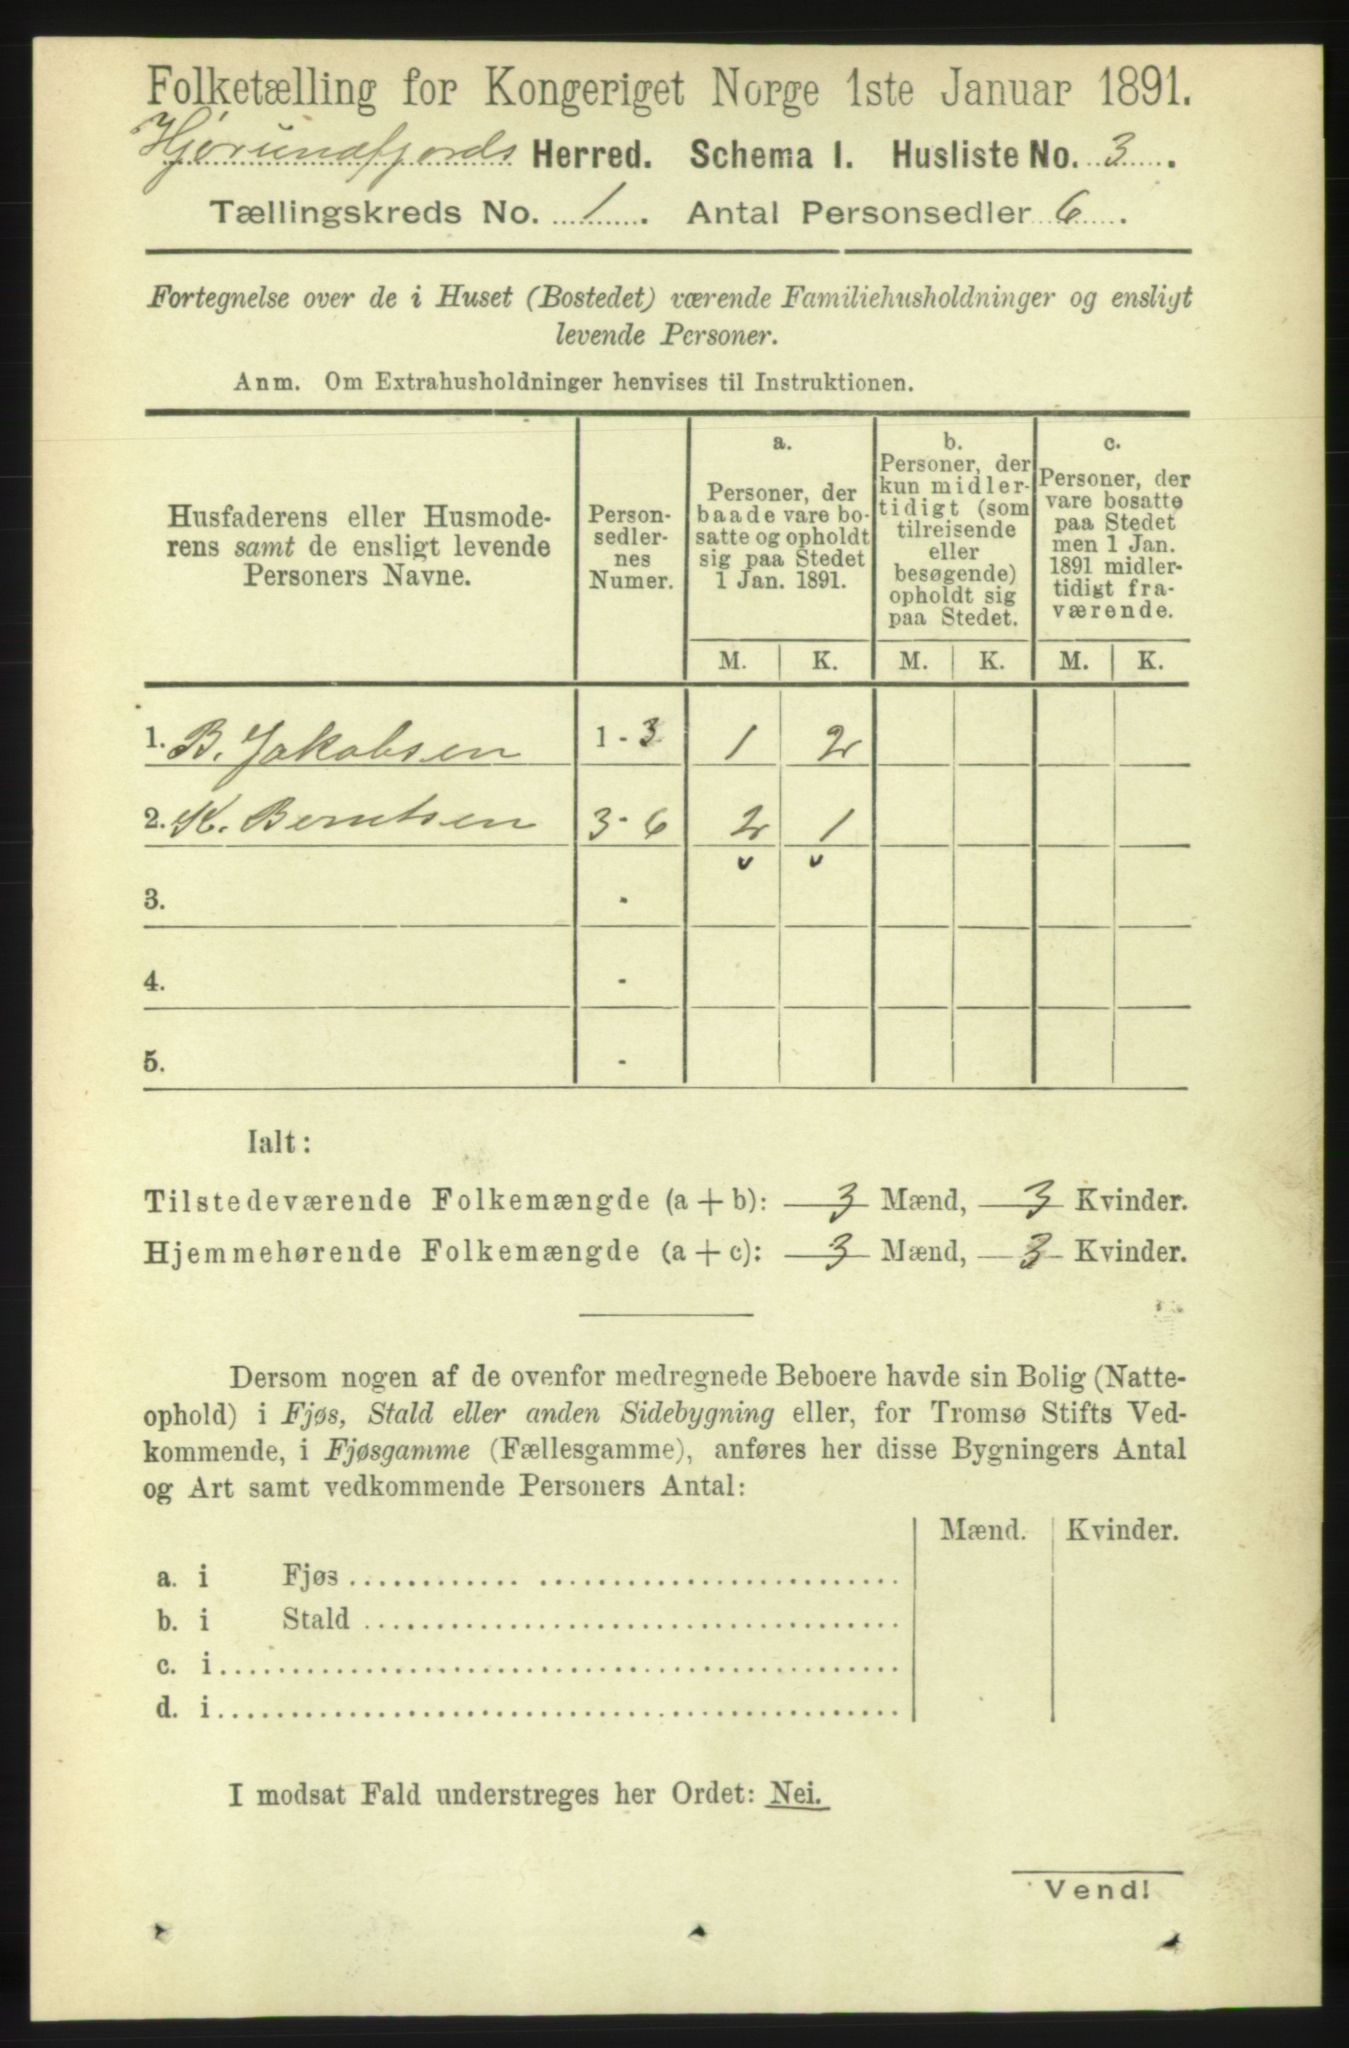 Folketælling for Kongeriget Norge 1ste Januar 1891.
Hjørundfjords Herred. Schema 1. Husliste No. 3.
Tællingskreds No. 1. Antal Personsedler 6.
Fortegnelse over de i Huset (Bostedet) værende Familiehusholdninger og ensligt
levende Personer.
Anm. Om Extrahusholdninger henvises til Instruktionen.
Husfaderens eller Husmode-
rens samt de ensligt levende
Personers Navne.
Person-
sedler-
nes
Numer.
a.
Personer, der
baade vare bo-
satte og opholdt
sig paa Stedet
1 Jan. 1891.
b.
Personer, der
kun midler-
tidigt (som
tilreisende
eller
besøgende)
opholdt sig
paa Stedet.
c.
Personer, der
vare bosatte
paa Stedet
men 1 Jan.
1891 midler-
tidigt fra-
værende.
M. K. M. K. M. K.
1. B. Jakobsen 1 - 3 1 2
2. K. Berntsen 3 - 6 2 1
3. -
4. -
5. -
Ialt:
Tilstedeværende Folkemængde (a + b): 3 Mænd, 3 Kvinder.
Hjemmehørende Folkemængde (a + c): 3 Mænd, 3 Kvinder.
Dersom nogen af de ovenfor medregnede Beboere havde sin Bolig (Natte-
ophold) i Fjøs, Stald eller anden Sidebygning eller, for Tromsø Stifts Ved-
kommende, i Fjøsgamme (Fællesgamme), anføres her disse Bygningers Antal
og Art samt vedkommende Personers Antal:
Mænd. Kvinder.
a. i Fjøs
b. i Stald
c. i
d. i
I modsat Fald understreges her Ordet: Nei.
Vend!